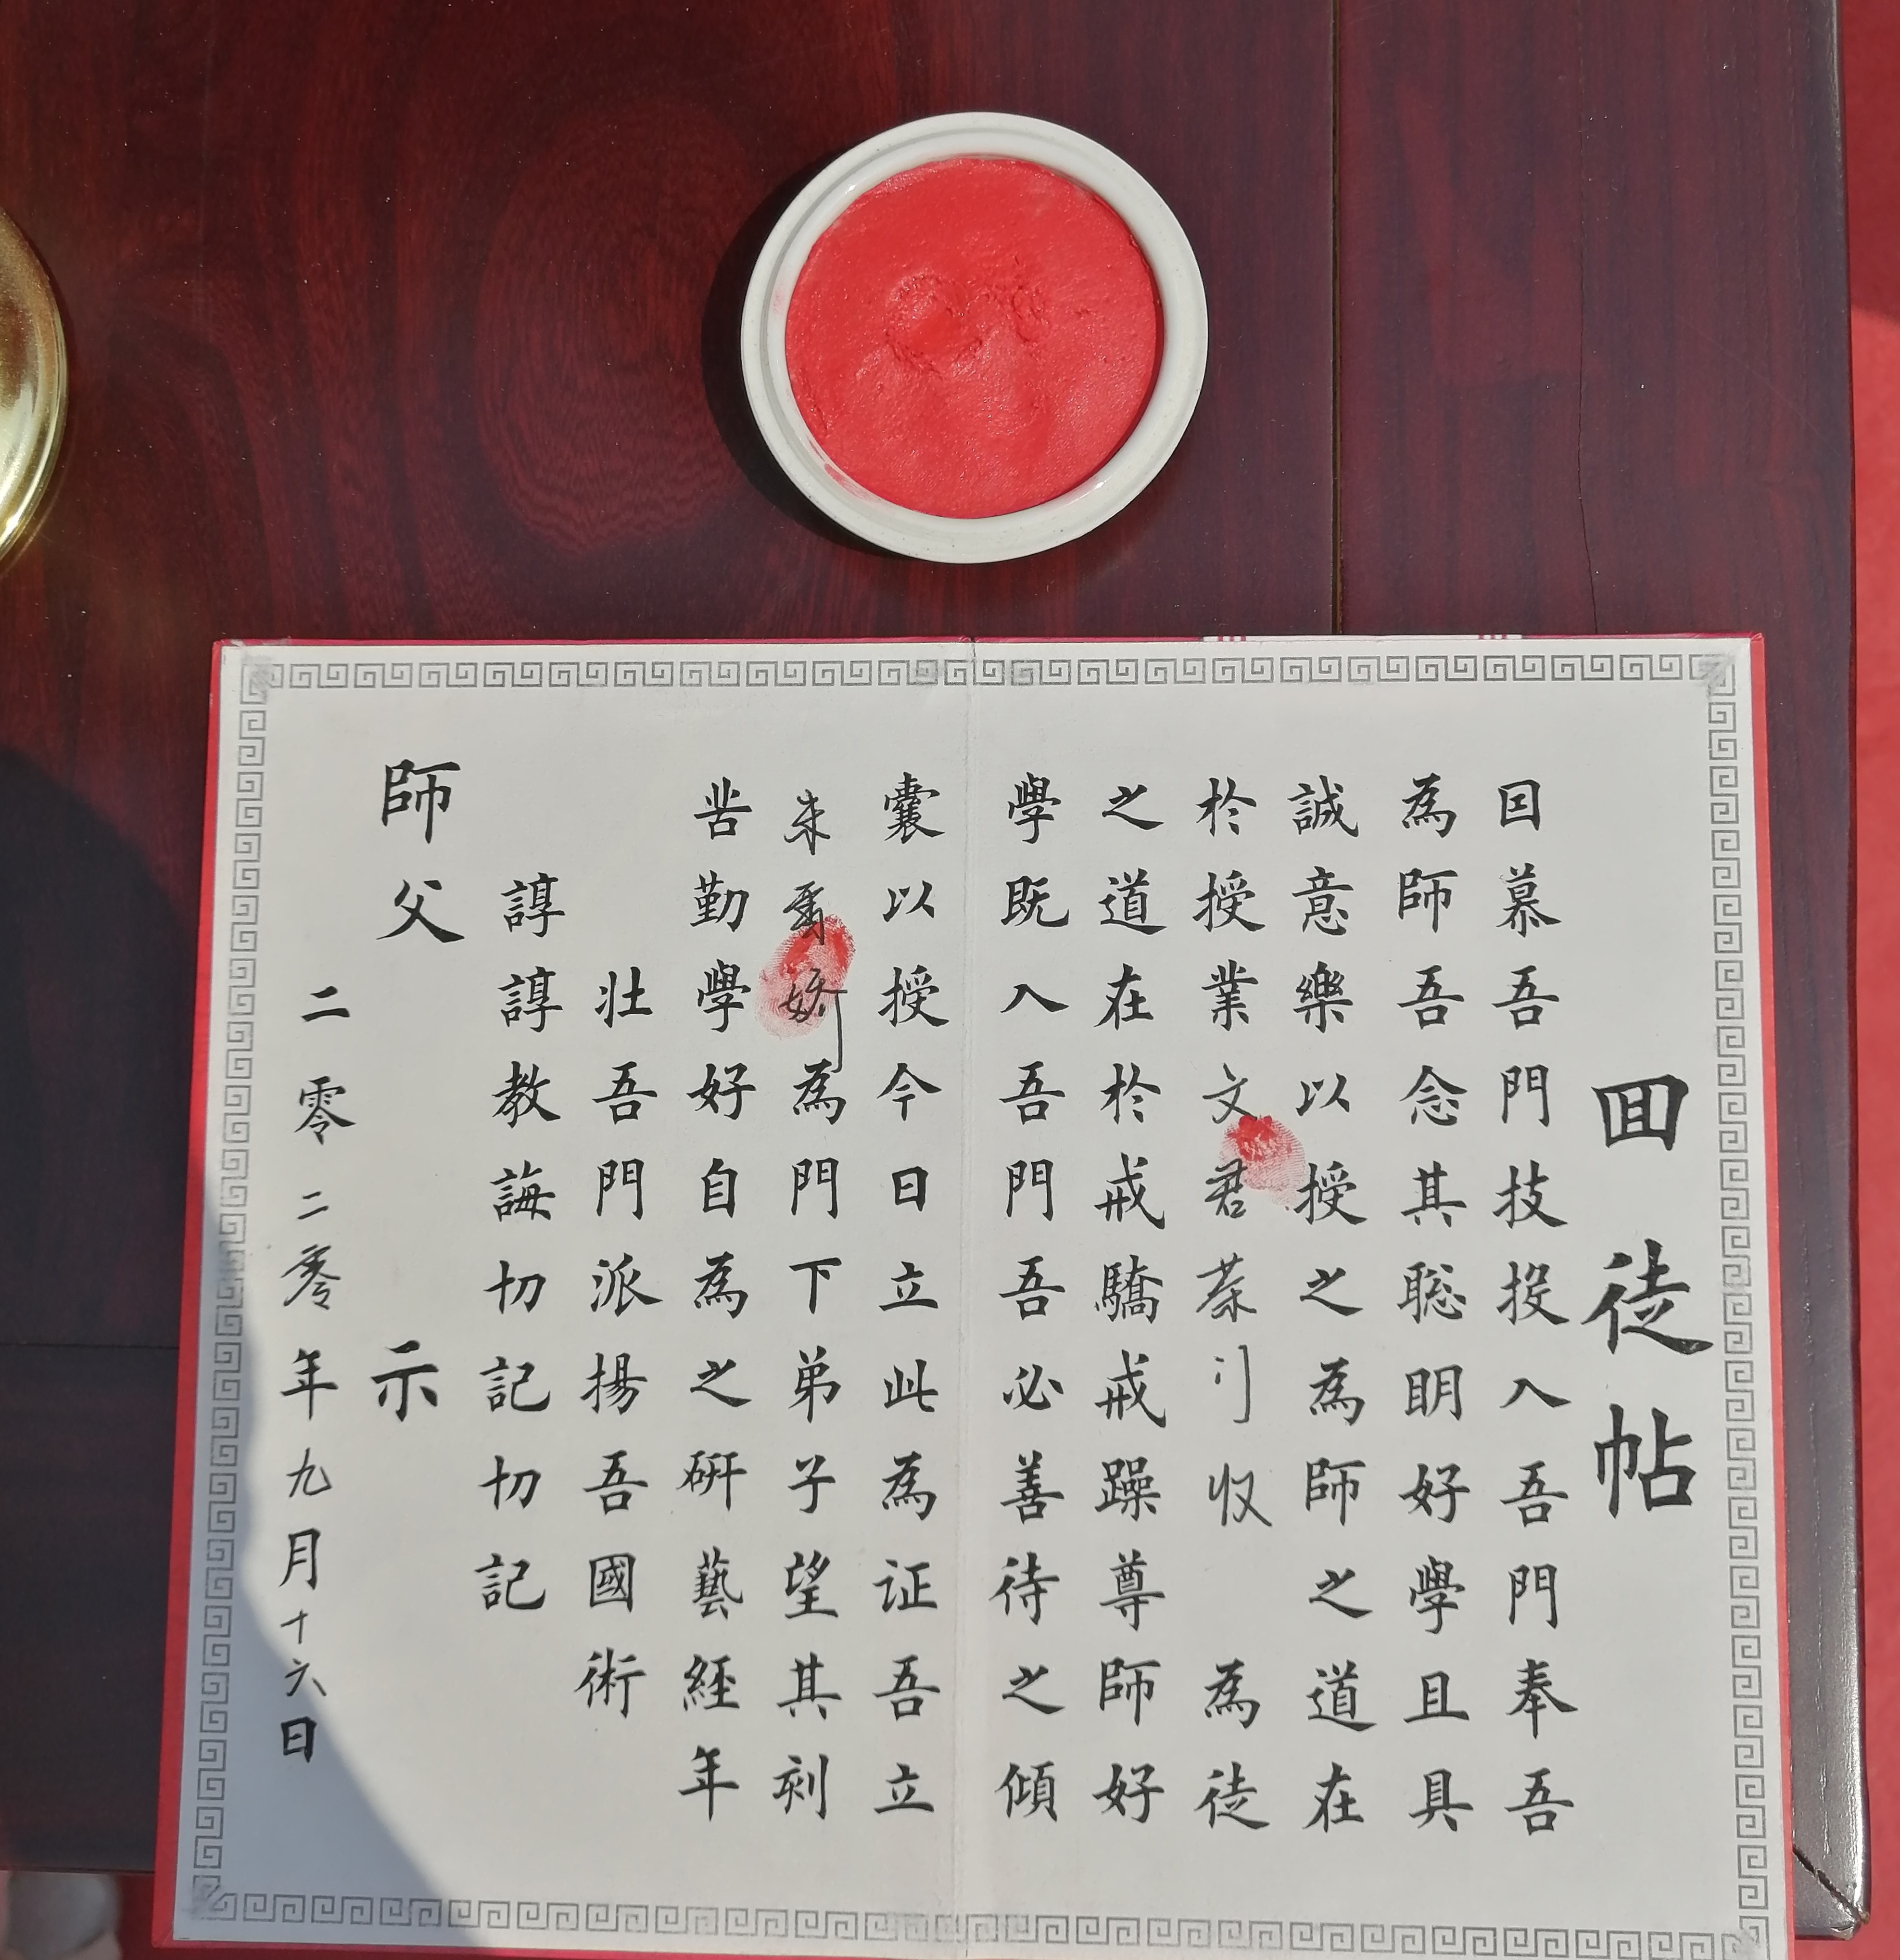 囬徒帖
囙慕吾門技投入吾門奉吾
為師吾念其聡眀好學且具
誠意樂以授之為師之道在
於授業文君收為徒
之道在於戒驕戒躁尊師好
學既入吾門吾必善待之傾
囊以授今日立此為证吾立
朱嬌為門下弟子望其刻
苦勤學好自為之研藝經年
壯吾門派揚吾國術
諄諄教誨切記切記
師父 示
二零二零年九月十六日